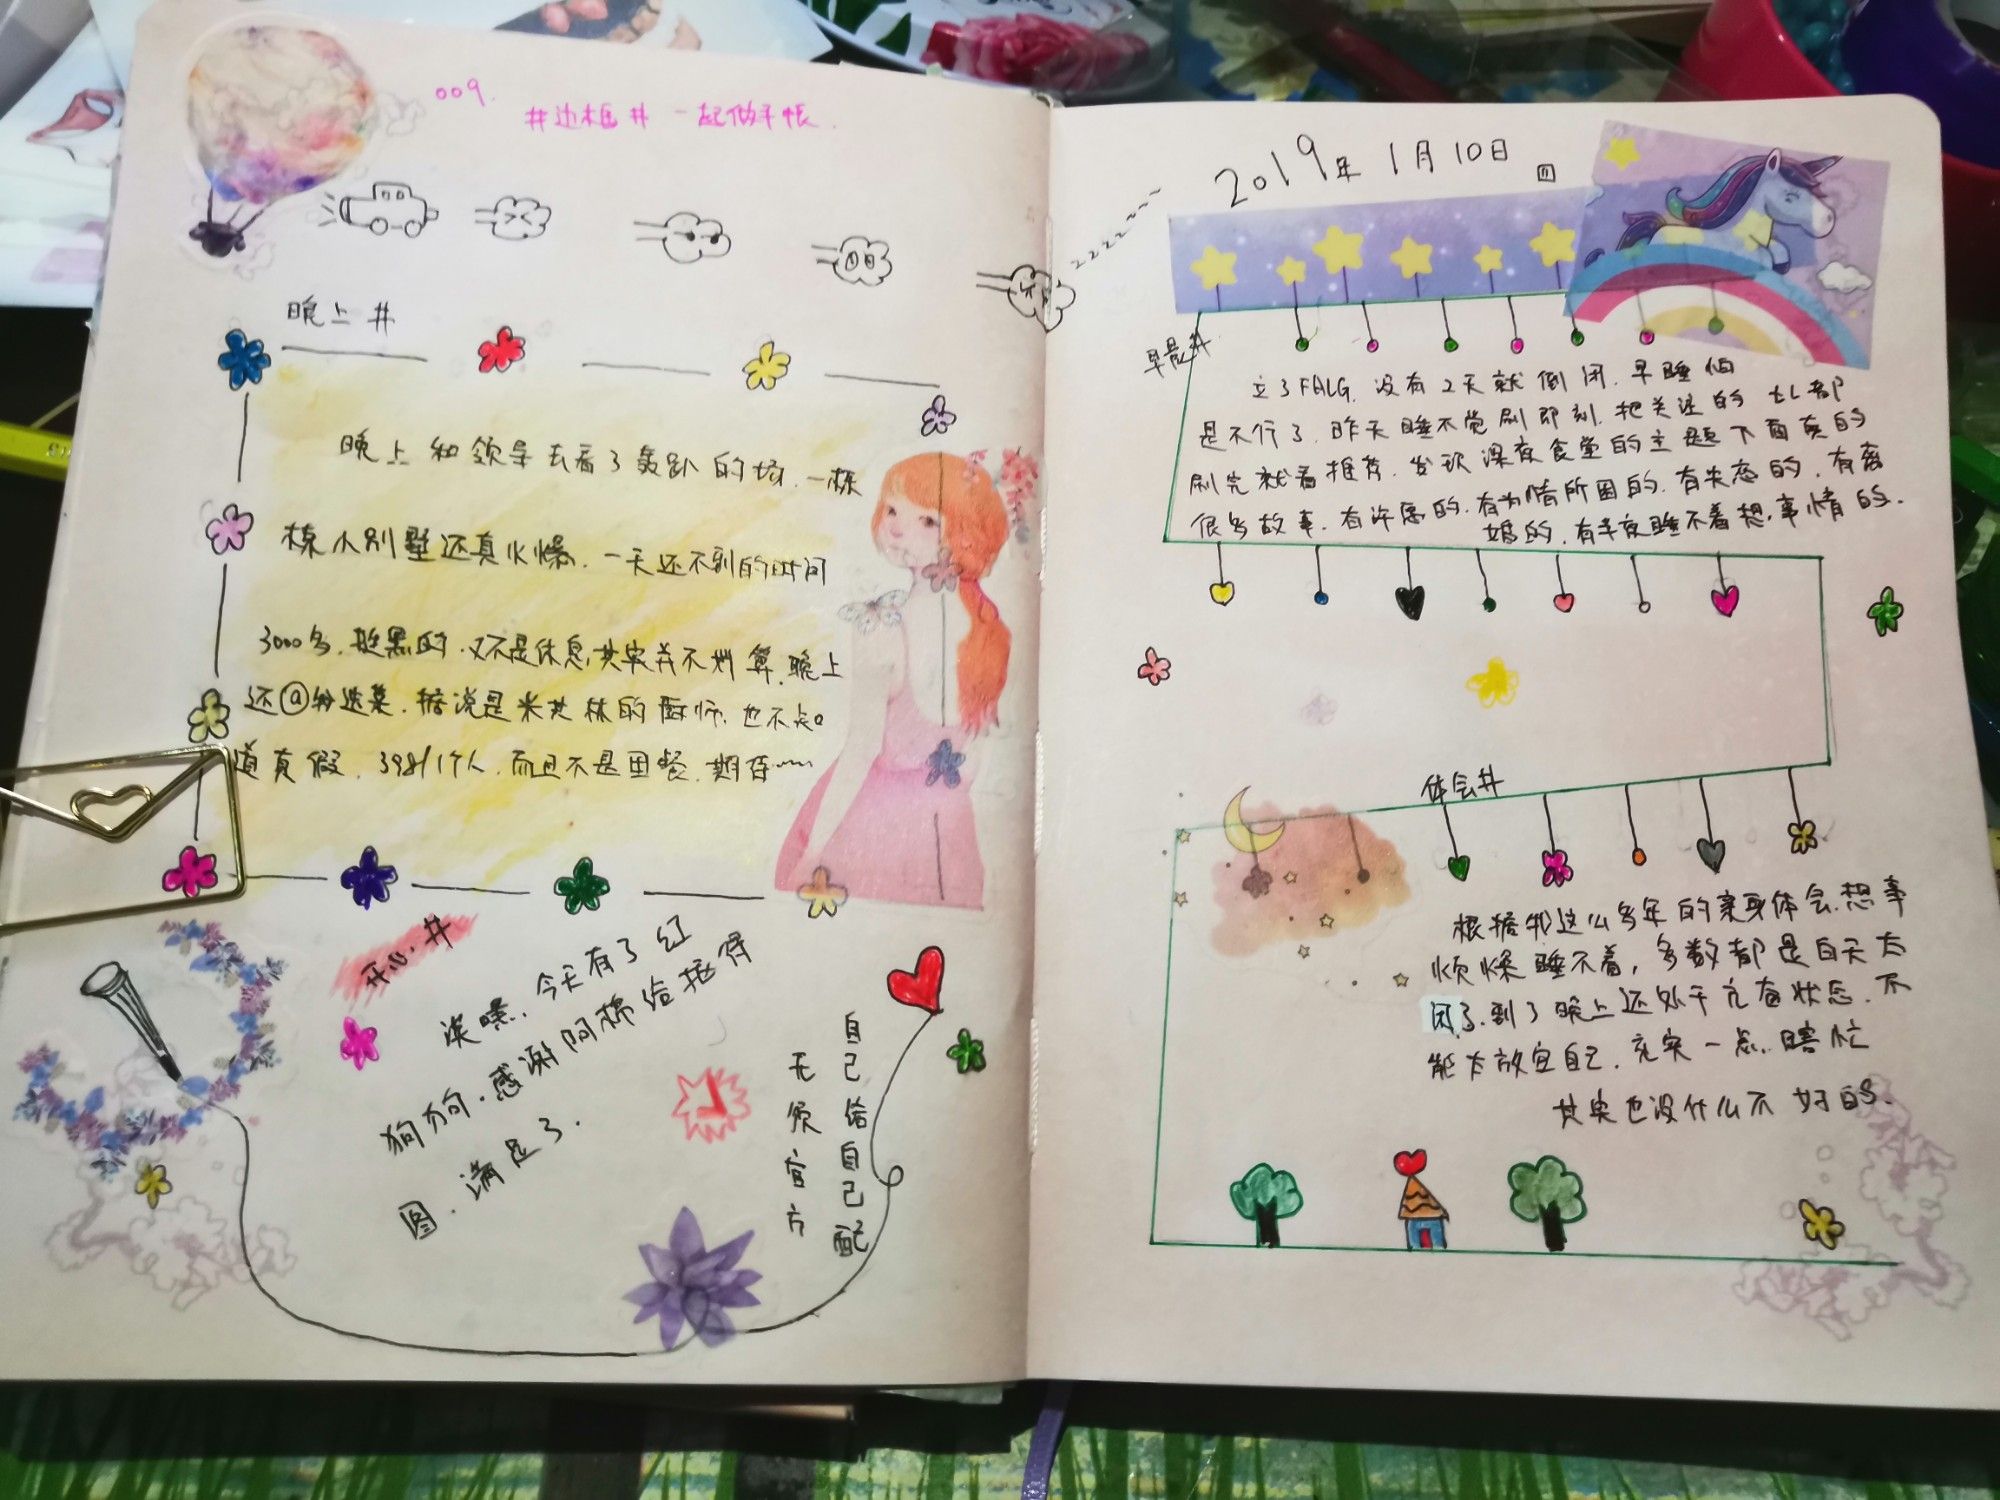 009.
#边框# 一起做手帐
晚上#
晚上和领导去看了轰趴的场.一栋
栋小别墅还真火爆.一天还不到的时间
3000多.挺黑的.又不是休息,其实并不划算.晚上
还@我选菜.据说是米其林的厨师.也不知
道真假.398/1个人.而且不是团餐.期待~~~
开心#
滚嘿,今天有了红
狗狗.感谢阿棉给抠得
图.满足了.
自己给自己配
无须官方
2019年1月10日 四
早晨#
立了FALG.没有2天就倒闭.早睡怕
是不行了.昨天睡不觉刷即刻.把关注的TL都
刷完就看推荐.发现深夜食堂的主题下面真的
很多故事.有许愿的.有为情所困的.有失恋的.有离
婚的.有半夜睡不着想事情的.
体会#
根据我这么多年的亲身体会.想事
烦燥睡不着,多数都是白天太
闲了.到了晚上还处于亢奋状态.不
能太放宜自己.充实一点.瞎忙
其实也没什么不好的.